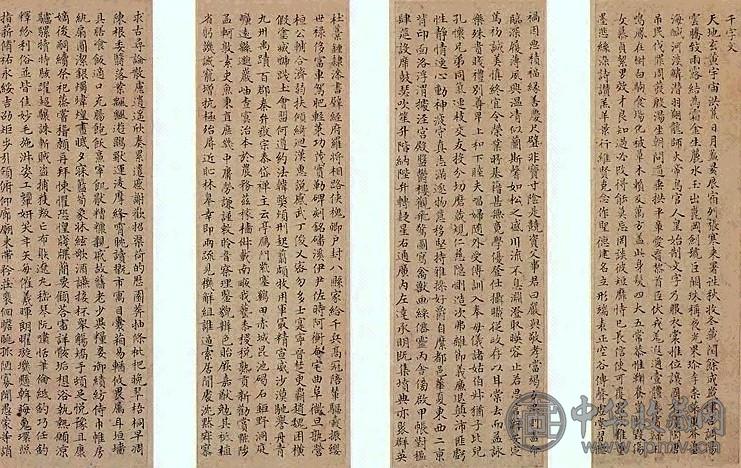 千字文
天地玄黃宇宙洪荒日月盈昃辰宿列張寒來暑往秋收冬藏閏餘成歲律呂調陽
雲騰致雨露結為霜金生麗水玉出崑岡劍號巨闕珠稱夜光果珍李柰菜重芥薑
海鹹河淡鱗潛羽翔龍師火帝鳥官人皇始制文字乃服衣裳推位讓國有虞陶唐
弔民伐罪周發殷湯坐朝問道垂拱平章愛育黎首臣伏戎羌遐邇壹體率賓歸王
鳴鳳在樹白駒食場化被草木賴及萬方蓋此身髮四大五常恭惟鞠養豈敢毀傷
女慕貞絜男效才良知過必改得能莫忘罔談彼短靡恃己長信使可覆器欲難量
墨悲絲染詩讚羔羊景行維賢克念作聖德建名立形端表正空谷傳聲虛堂習聽
禍因惡積福緣善慶尺璧非寶寸陰是競資父事君曰嚴與敬孝當竭力忠則盡命
臨深履薄夙興溫凊似蘭斯馨如松之盛川流不息淵澄取映容止若思言辭安定
篤初誠美慎終宜令榮業所基籍甚無竟學優登仕攝職從政存以甘棠去而益詠
樂殊貴賤禮別尊卑上和下睦夫唱婦隨外受傅訓入奉母儀諸姑伯叔猶子比兒
孔懷兄弟同氣連枝交友投分切磨箴規仁慈隱惻造次弗離節義廉退顛沛匪虧
性靜情逸心動神疲守真志滿逐物意移堅持雅操好爵自縻都邑華夏東西二京
背邙面洛浮渭據涇宮殿盤鬱樓觀飛驚圖寫禽獸畫綵仙靈丙舍傍啟甲帳對楹
肆筵設席鼓瑟吹笙升階納陛弁轉疑星右通廣內左達承明既集墳典亦聚群英
杜稾鍾隸漆書壁經府羅將相路俠槐卿戶封八縣家給千兵高冠陪輦驅轂振纓
世祿侈富車駕肥輕策功茂實勒碑刻銘磻溪伊尹佐時阿衡奄宅曲阜微旦孰營
桓公匡合濟弱扶傾綺迴漢惠說感武丁俊乂密勿多士寔寧晉楚更霸趙魏困橫
假途滅虢踐土會盟何遵約法韓弊煩刑起翦頗牧用軍最精宣威沙漠馳譽丹青
九州禹跡百郡秦并嶽宗泰岱禪主云亭雁門紫塞雞田赤城昆池碣石鉅野洞庭
曠遠緜邈巖岫杳冥治本於農務茲稼穡俶載南畝我藝黍稷稅熟貢新勸賞黜陟
孟軻敦素史魚秉直庶幾中庸勞謙謹敕聆音察理鑑貌辨色貽厥嘉猷勉其祗植
省躬譏誡寵增抗極殆辱近恥林皋幸即兩疏見機解組誰逼索居閑處沉默寂寥
求古尋論散慮逍遙欣奏累遣慼謝歡招渠荷的歷園莽抽條枇杷晚翠梧桐早凋
陳根委翳落葉飄颻遊鵾獨運凌摩絳霄耽讀翫市寓目囊箱易輶攸畏屬耳垣牆
具膳飡飯適口充腸飽飫烹宰飢厭糟糠親戚故舊老少異糧妾御績紡侍巾帷房
紈扇圓潔銀燭煒煌晝眠夕寐藍筍象牀絃歌酒讌接杯舉觴矯手頓足悅豫且康
嫡後嗣續祭祀蒸嘗稽顙再拜悚懼恐惶牋牒簡要顧答審詳骸垢想浴執熱願涼
驢騾犢特駭躍超驤誅斬賊盜捕獲叛亡布射遼丸嵇琴阮嘯恬筆倫紙鈞巧任釣
釋紛利俗並皆佳妙毛施淑姿工顰妍笑年矢每催羲暉朗曜璇璣懸斡晦魄環照
指薪修祜永綏吉劭矩步引領俯仰廊廟束帶矜莊徘徊瞻眺孤陋寡聞愚蒙等誚
中华收藏网